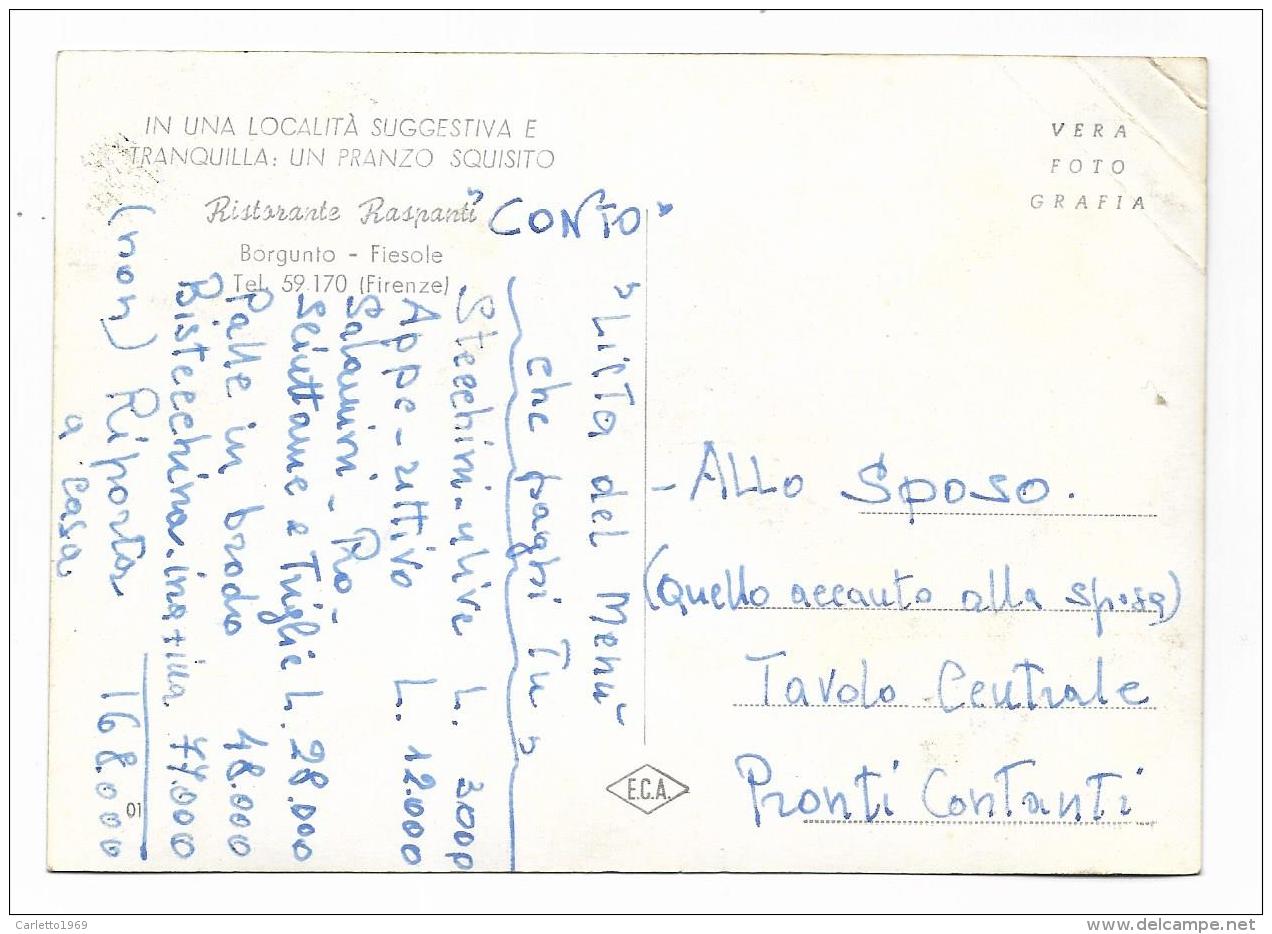 IN UNA LOCALITÀ SUGGESTIVA E
TRANQUILLA: UN PRANZO SQUISITO
Ristorante Raspanti
Borgunto - Fiesole
Tel. 59.170 (Firenze)
VERA
FOTO
GRAFIA
"CONTO"
"Lista del Menù"
che paghi Tu"
Stecchini-ulive L. 3000
Appe-ritivo L. 12.000
Salamini - Rò-
Sciuttame e Triglie L. 28.000
Palle in brodo 48.000
Bistecchina.ina+ina 77.000
(non) Riporta 168.000
a casa
- Allo Sposo.
(quello accanto alla sposa)
Tavolo Centrale
Pronti Contanti
E.C.A.
01
Carletto1969
www.delcampe.net